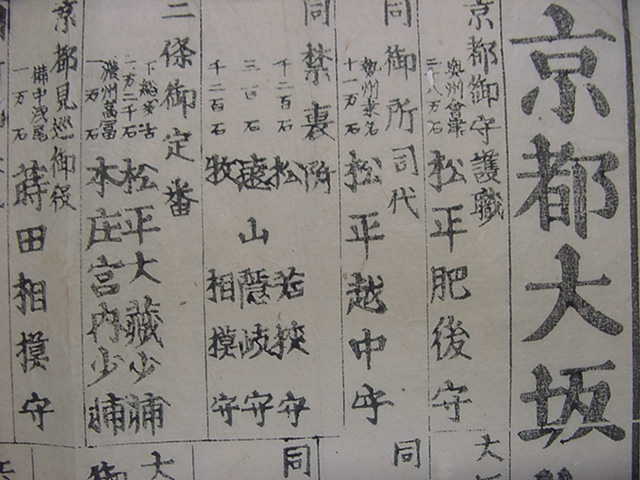 京都大坂
京都御守護職
奥州會津
二十八万石
松平肥後守
同御所司代
勢州桑名
十一万石
松平越中守
同禁裏附
千二百石
松 若狭守
三百石
遠山隠岐守
千二百石
牧 相摸守
二條御定番
下総多古
一万二千石
松平大藏少輔
濃州高富
一万石
本庄宮内少輔
京都見巡御役
備中浅尾
一万石
蒔田相摸守
大
同
同
大
御